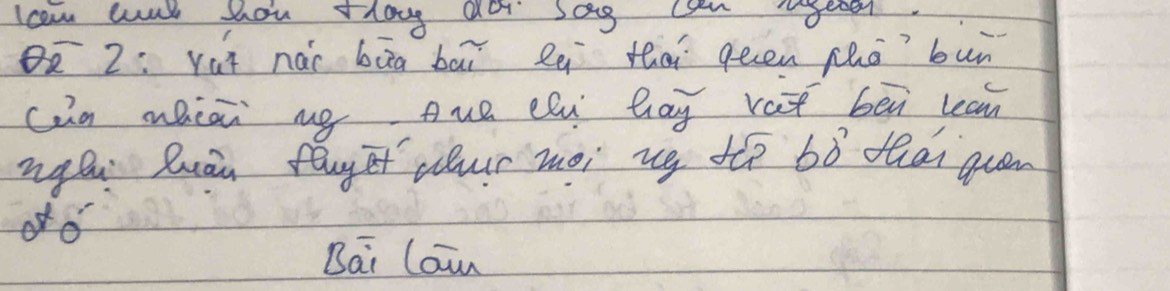 làm cuộc sống
Đề 2: Vứt rác bừa bãi là thói quen phổ biến
của nhiều ng. Anh chị hãy viết bài văn
nghị luận thuyết phục mọi ng từ bỏ thói quen
đó
Bài làm